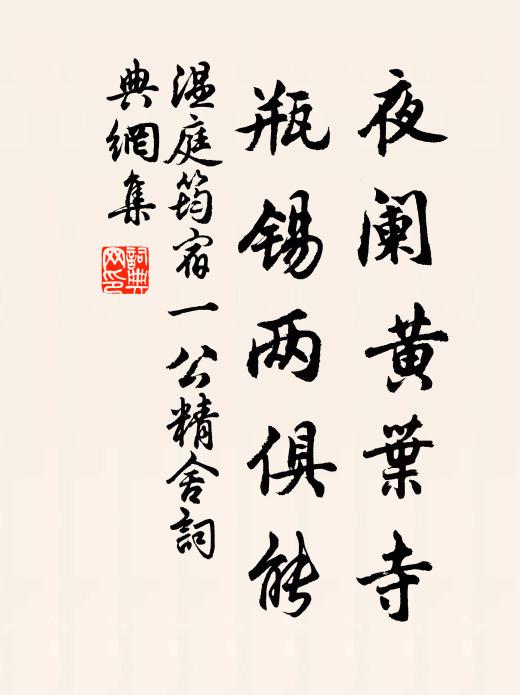 夜阑黄葉寺
瓶锡两俱能
温庭筠宿一公精舍詞
典網集
詞典网印